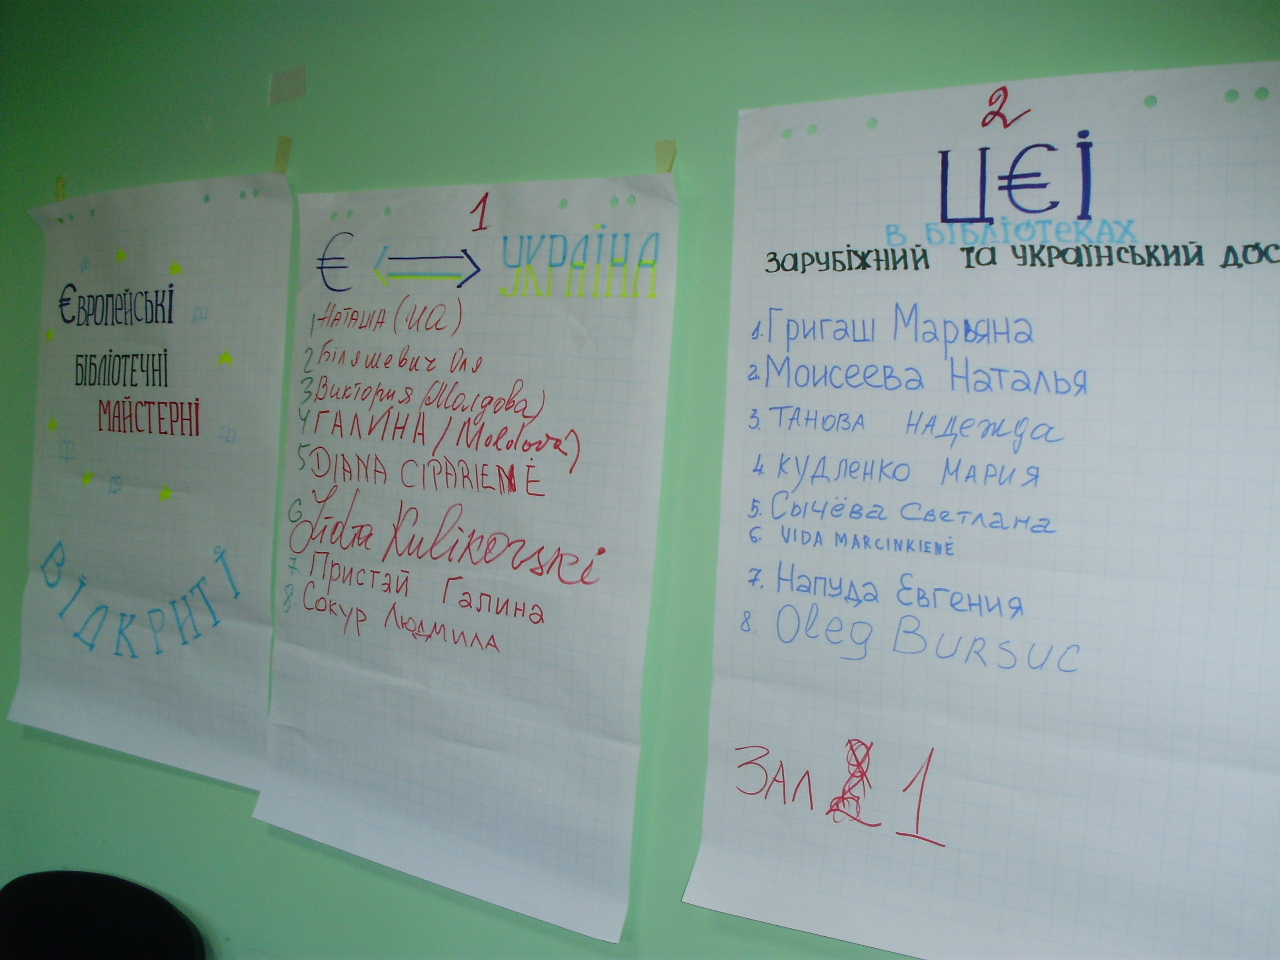 Європейські
бібліотечні
майстерні
Відкриті
1
€ ⟷ Україна
1 Наташа (UA)
2 Біляшевич Оля
3 Виктория (Молдова)
4 ГАЛИНА (Moldova)
5 DIANA CIPARIENĖ
6 Lidia Kulikovski
7 Пристай Галина
8 Сокур Людмила
2
Ц€І
в бібліотеках
зарубіжний та український дос
1. Григаш Марьяна
2. Моисеева Наталья
3. ТАНОВА НАДЕЖДА
4. КУДЛЕНКО МАРИЯ
5. Сычёва Светлана
6. VIDA MARCINKIENĖ
7. Напуда Евгения
8. Oleg BURSUC
ЗАЛ 1